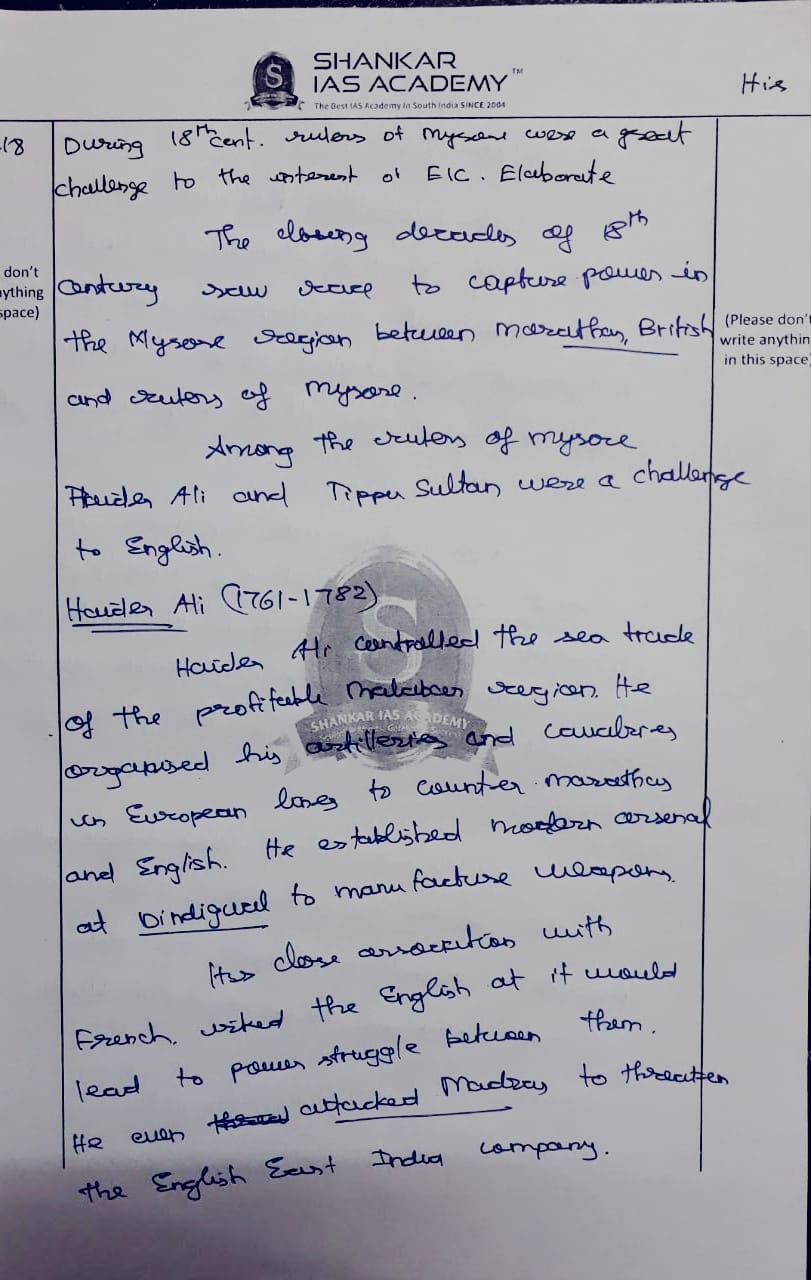 SHANKAR
IAS ACADEMY™
The Best IAS Academy In South India SINCE 2004
His
18 During 18th cent. rulers of Mysore were a great
challenge to the interest of EIC. Elaborate
The closing decades of 18th
Century saw race to capture power in
the Mysore region between Marathas, British
and rulers of Mysore.
don't
ything
space)
(Please don't
write anythin
in this space)
Among the rulers of mysore
Haider Ali and Tippu Sultan were a challenge
to English.
Haider Ali (1761-1782)
Haider Ali controlled the sea trade
of the profitable Malabar region. He
organised his artilleries and cavalries
in European lines to counter marathas
and English. He established modern arsenal
at Dindigual to manufacture weapons.
SHANKAR IAS ACADEMY
His close association with
French. irked the English at it would
lead to power struggle between them.
He even attacked Madras to threaten
the English East India company.